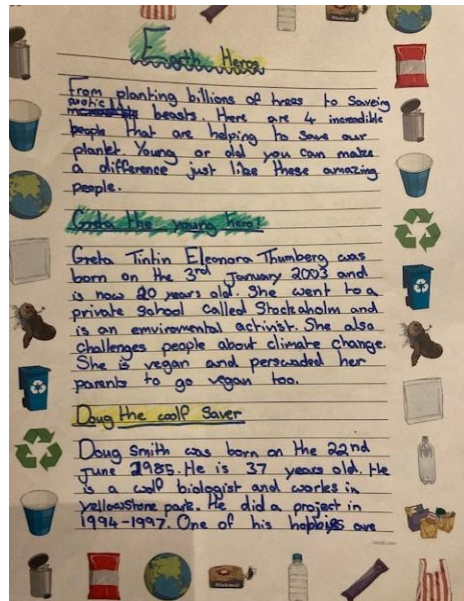 Earth Heros
From planting billions of trees to saveing
arctic beasts. Here are 4 incredible
people that are helping to save our
planet. Young or old you can make
a difference just like these amazing
people.
Greta the young hero!
Greta Tintin Eleonora Thumberg was
born on the 3rd January 2003 and
is now 20 years old. She went to a
private school called Stockaholm and
is an emvironmental activist. She also
challenges people about climate change.
She is vegan and perswaded her
parents to go vegan too.
Doug the woolf Saver
Doug Smith was born on the 22nd
June 1985. He is 37 years old. He
is a wolf biologist and workes in
yellowstone park. He did a project in
1994-1997. One of his hobbies are